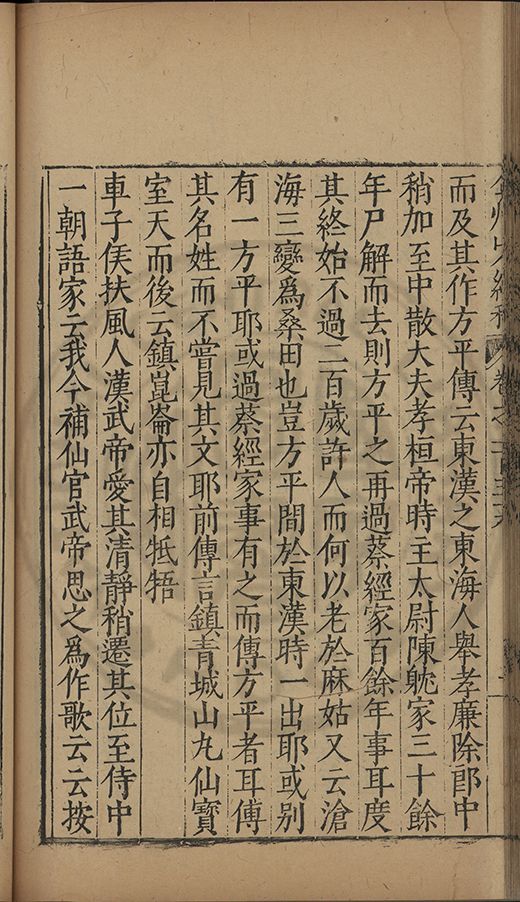 卷之
而及其作方平傳云東漢之東海人舉孝廉除郎中
稍加至中散大夫孝桓帝時王太尉陳躭家三十餘
年尸解而去則方平之再過蔡經家百餘年事耳度
其終始不過二百歲許人而何以老於麻姑又云滄
海三變爲桑田也豈方平間於東漢時一出耶或别
有一方平耶或過蔡經家事有之而傳方平者耳傅
其名姓而不嘗見其文耶前傳言鎮青城山九仙寶
室天而後云鎮崑崙亦自相牴牾
車子侯扶風人漢武帝愛其清靜稍遷其位至侍中
一朝語家云我今補仙官武帝思之爲作歌云云按